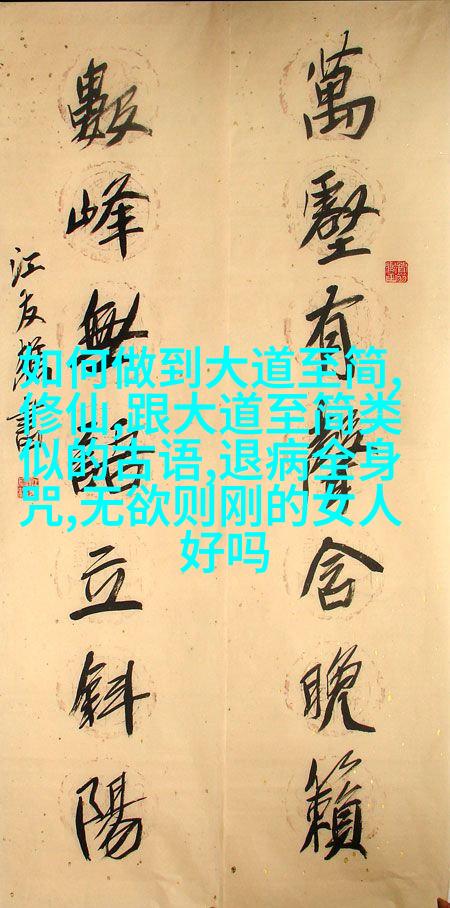 萬壑有聲含晚籟
數峰無語立斜陽
江友樵書
如何做到大道至简,
修仙,跟大道至简类
似的古语,退病全身
咒,无欲则刚的女人
好吗